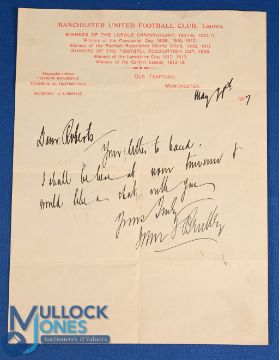 MANCHESTER UNITED FOOTBALL CLUB, LIMITED.
WINNERS OF THE LEAGUE CHAMPIONSHIP, 1907-8, 1910-11.
Winners of the Manchester Cup, 1908, 1910, 1912.
Winners of the Football Association Charity Shield, 1908, 1911.
WINNERS OF THE FOOTBALL ASSOCIATION CUP, 1909.
Winners of the Lancashire Cup, 1912-13.
Winners of the Central League, 1912-13.
OLD TRAFFORD,
MANCHESTER,
SECRETARY: J. J. BENTLEY.
May 191
Dear Roberts
Your letter to hand.
I shall be here at your
would like a chat with you
Yours truly
Bentley
MULLOCK
JONES
Auctioneers & Valuers